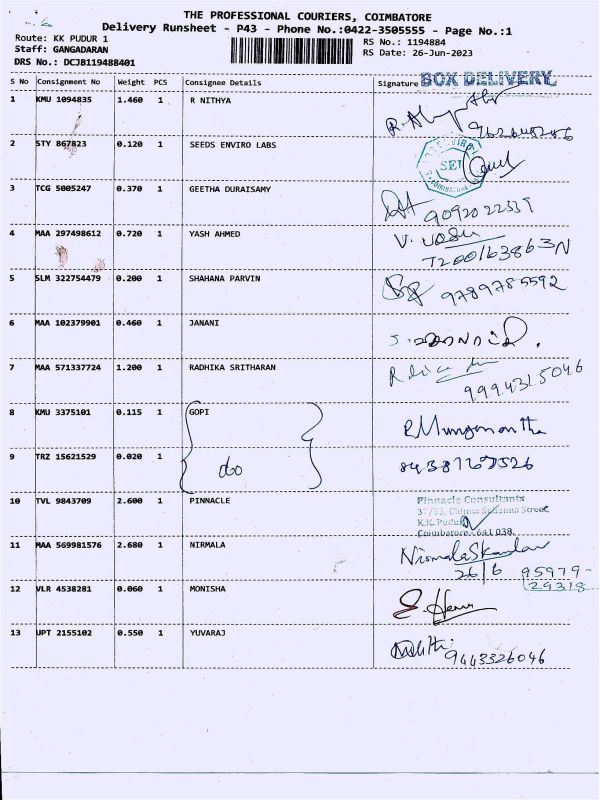 THE PROFESSIONAL COURIERS, COIMBATORE
Delivery Runsheet - P43 - Phone No.:0422-3505555 - Page No.:1
Route: KK PUDUR 1
RS No.: 1194884
Staff: GANGADARAN
RS Date: 26-Jun-2023
DRS No.: DCJB119488401
S No Consignment No Weight PCS Consignee Details Signature BOX DELIVERY
1 KMU 1094835 1.460 1 R NITHYA
2 STY 867823 0.120 1 SEEDS ENVIRO LABS
SEL
3 TCG 5005247 0.370 1 GEETHA DURAISAMY
4 MAA 297498612 0.720 1 YASH AHMED V. vasu
7200163863N
5 SLM 322754479 0.200 1 SHAHANA PARVIN 9789785592
6 MAA 102379901 0.460 1 JANANI
7 MAA 571337724 1.200 1 RADHIKA SRITHARAN
9994315046
8 KMU 3375101 0.115 1 GOPI
9 TRZ 15621529 0.020 1 do
10 TVL 9843709 2.600 1 PINNACLE Pinnacle Consultants
K.K. Pudur
Coimbatore - 641 038.
11 MAA 569981576 2.680 1 NIRMALA
26/6 95979-
29318
12 VLR 4538281 0.060 1 MONISHA
13 UPT 2155102 0.550 1 YUVARAJ
9443326046